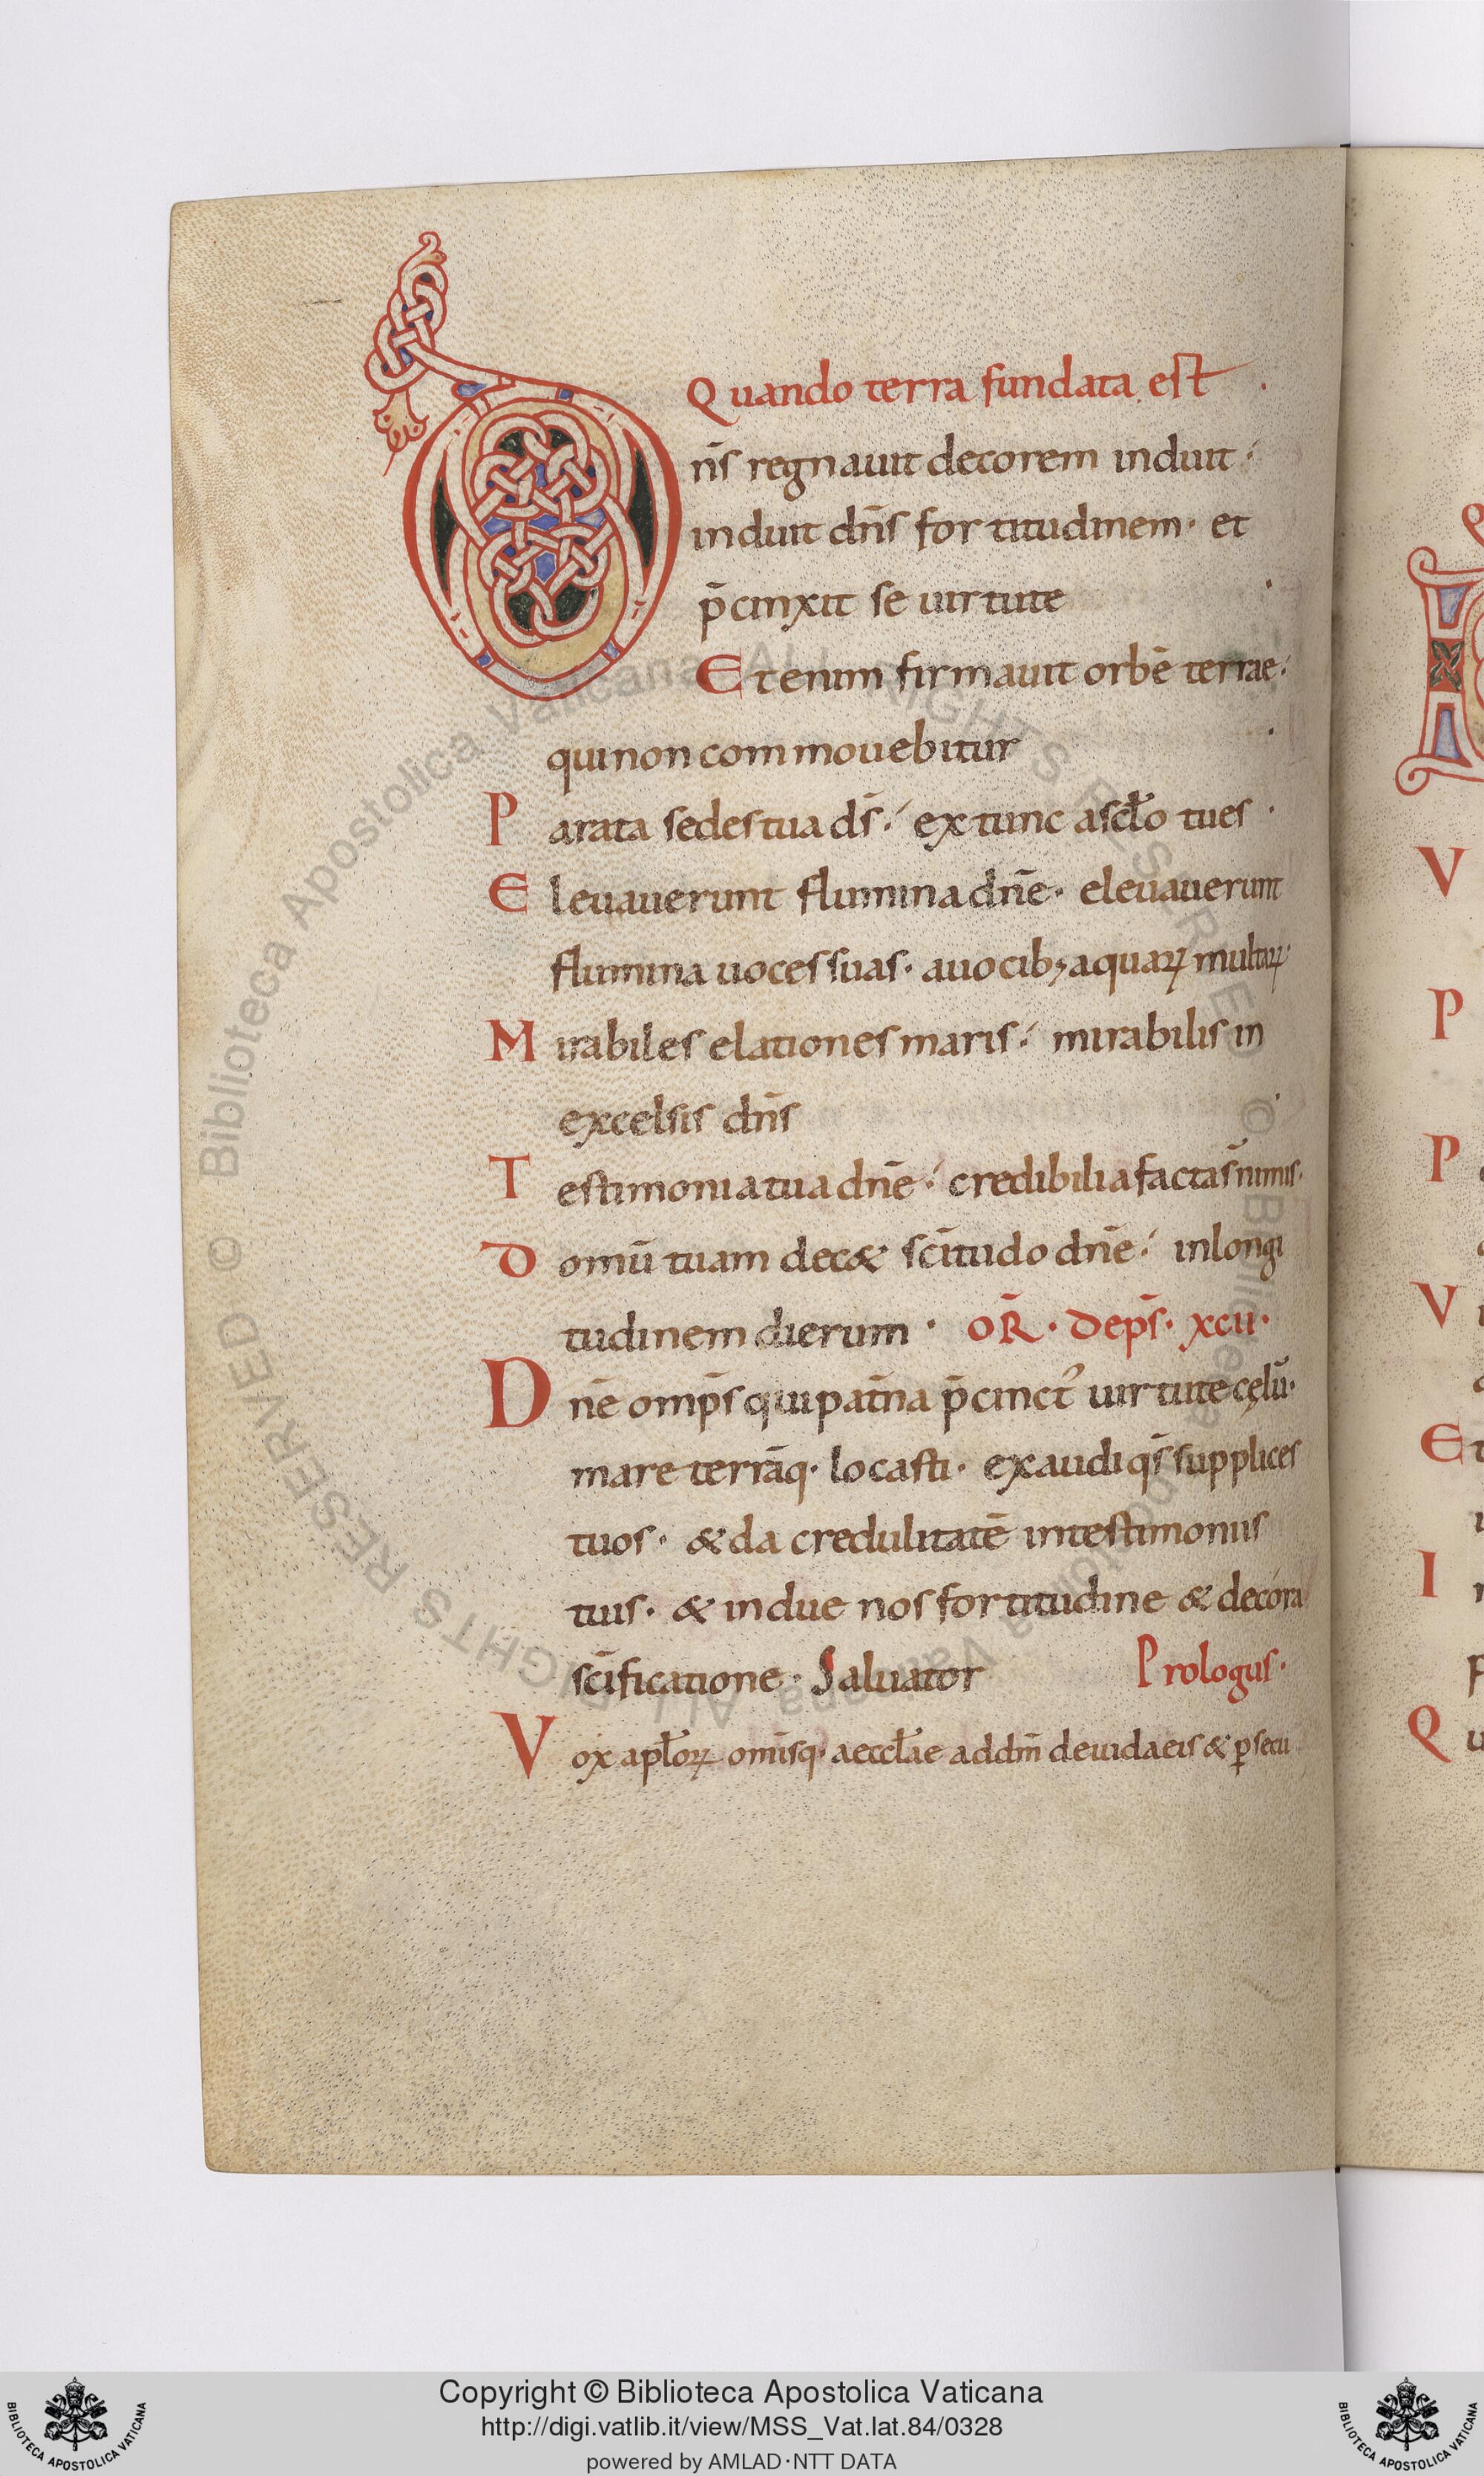 Quando terra fundata est
Dn̄s regnauit decorem induit·
induit dn̄s fortitudinem· et
p̄cinxit se uirtute
Etenim firmauit orbē terrae·
qui non commouebitur
Parata sedes tua ds̄· ex tunc a scł̄o tu es·
Eleuauerunt flumina dn̄e· eleuauerunt
flumina uoces suas· a uocib; aquaꝝ multaꝝ·
Mirabiles elationes maris· mirabilis in
excelsis dn̄s
Testimonia tua dn̄e· credibilia facta s̄ nimis·
Domū tuam dec& sc̄itudo dn̄e· in longi
tudinem dierum· OR̄· De ps̄· xcii·
Dn̄e omp̄s qui pat̄na p̄cinct᾽ uirtute cęlū·
mare terrāq· locasti· exaudi qs̄ supplices
tuos· & da credulitatē in testimoniis
tuis· & indue nos fortitudine & decóra
sc̄ificatione· Saluator Prologus·
Vox apł̄oꝝ omīsq· aeccł̄ae ad dm̄ de iudaeis & ꝑsecu
P
V
P
P
V
Et
I
Qu
© Biblioteca Apostolica Vaticana ALL RIGHTS RESERVED
Copyright © Biblioteca Apostolica Vaticana
http://digi.vatlib.it/view/MSS_Vat.lat.84/0328
powered by AMLAD·NTT DATA
BIBLIOTECA APOSTOLICA VATICANA
BIBLIOTECA APOSTOLICA VATICANA